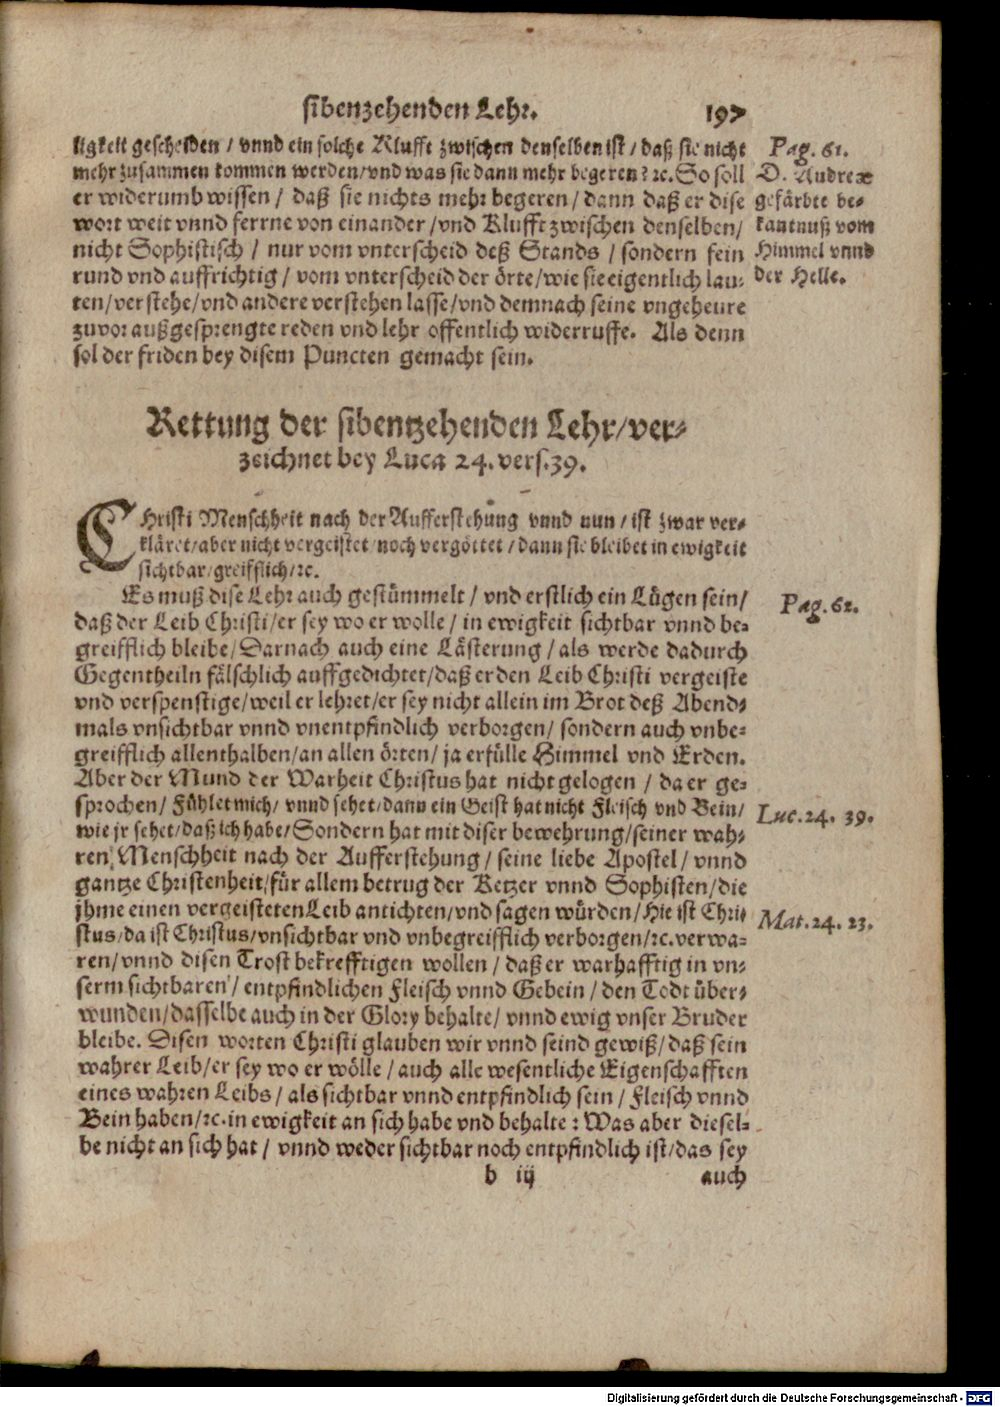 sibenzehenden Lehr. 197
ligkeit gescheiden / vnnd ein solche Klufft zwischen denselben ist / daß sie nicht
mehr zusammen kommen werden / vnd was sie dann mehr begeren? ꝛc. So soll
er widerumb wissen / daß sie nichts mehr begeren / dann daß er dise
wort weit vnnd ferrne von einander / vnd Klufft zwischen denselben /
nicht Sophistisch / nur vom vnterscheid deß Stands / sondern fein
rund vnd auffrichtig / vom vnterscheid der örte / wie sie eigentlich lau-
ten / verstehe / vnd andere verstehen lasse / vnd demnach seine vngeheure
zuvor außgesprengte reden vnd lehr offentlich widerruffe. Als denn
sol der friden bey disem Puncten gemacht sein.
Pag. 61.
D. Andreæ
gefärbte be-
kantnuß vom
Himmel vnnd
der Helle.
Rettung der sibentzehenden Lehr / ver-
zeichnet bey Luca 24. vers. 39.
CHristi Menschheit nach der Aufferstehung vnnd nun / ist zwar ver-
kläret / aber nicht vergeistet / noch vergöttet / dann sie bleibet in ewigkeit
sichtbar / greifflich / ꝛc.
Es muß dise Lehr auch gestümmelt / vnd erstlich ein Lügen sein /
daß der Leib Christi / er sey wo er wolle / in ewigkeit sichtbar vnnd be-
greifflich bleibe / Darnach auch eine Lästerung / als werde dadurch
Gegentheiln fälschlich auffgedichtet / daß er den Leib Christi vergeiste
vnd verspenstige / weil er lehret / er sey nicht allein im Brot deß Abend-
mals vnsichtbar vnnd vnentpfindlich verborgen / sondern auch vnbe-
greifflich allenthalben / an allen örten / ja erfülle Himmel vnd Erden.
Aber der Mund der Warheit Christus hat nicht gelogen / da er ge-
sprochen / Fühlet mich / vnnd sehet / dann ein Geist hat nicht Fleisch vnd Bein /
wie jr sehet / daß ich habe / Sondern hat mit diser bewehrung / seiner wah-
ren Menschheit nach der Aufferstehung / seine liebe Apostel / vnnd
gantze Christenheit / für allem betrug der Ketzer vnnd Sophisten / die
jhme einen vergeisteten Leib antichten / vnd sagen würden / Hie ist Chri-
stus / da ist Christus / vnsichtbar vnd vnbegreifflich verborgen / ꝛc. verwa-
ren / vnnd disen Trost bekrefftigen wollen / daß er warhafftig in vn-
serm sichtbaren / entpfindlichen Fleisch vnnd Gebein / den Todt über-
wunden / dasselbe auch in der Glory behalte / vnnd ewig vnser Bruder
bleibe. Disen worten Christi glauben wir vnnd seind gewiß / daß sein
wahrer Leib / er sey wo er wölle / auch alle wesentliche Eigenschafften
eines wahren Leibs / als sichtbar vnnd entpfindlich sein / Fleisch vnnd
Bein haben / ꝛc. in ewigkeit an sich habe vnd behalte : Was aber diesel-
be nicht an sich hat / vnnd weder sichtbar noch entpfindlich ist / das sey
Pag. 62.
Luc. 24. 39.
Mat. 24. 23.
b iij auch
Digitalisierung gefördert durch die Deutsche Forschungsgemeinschaft - DFG